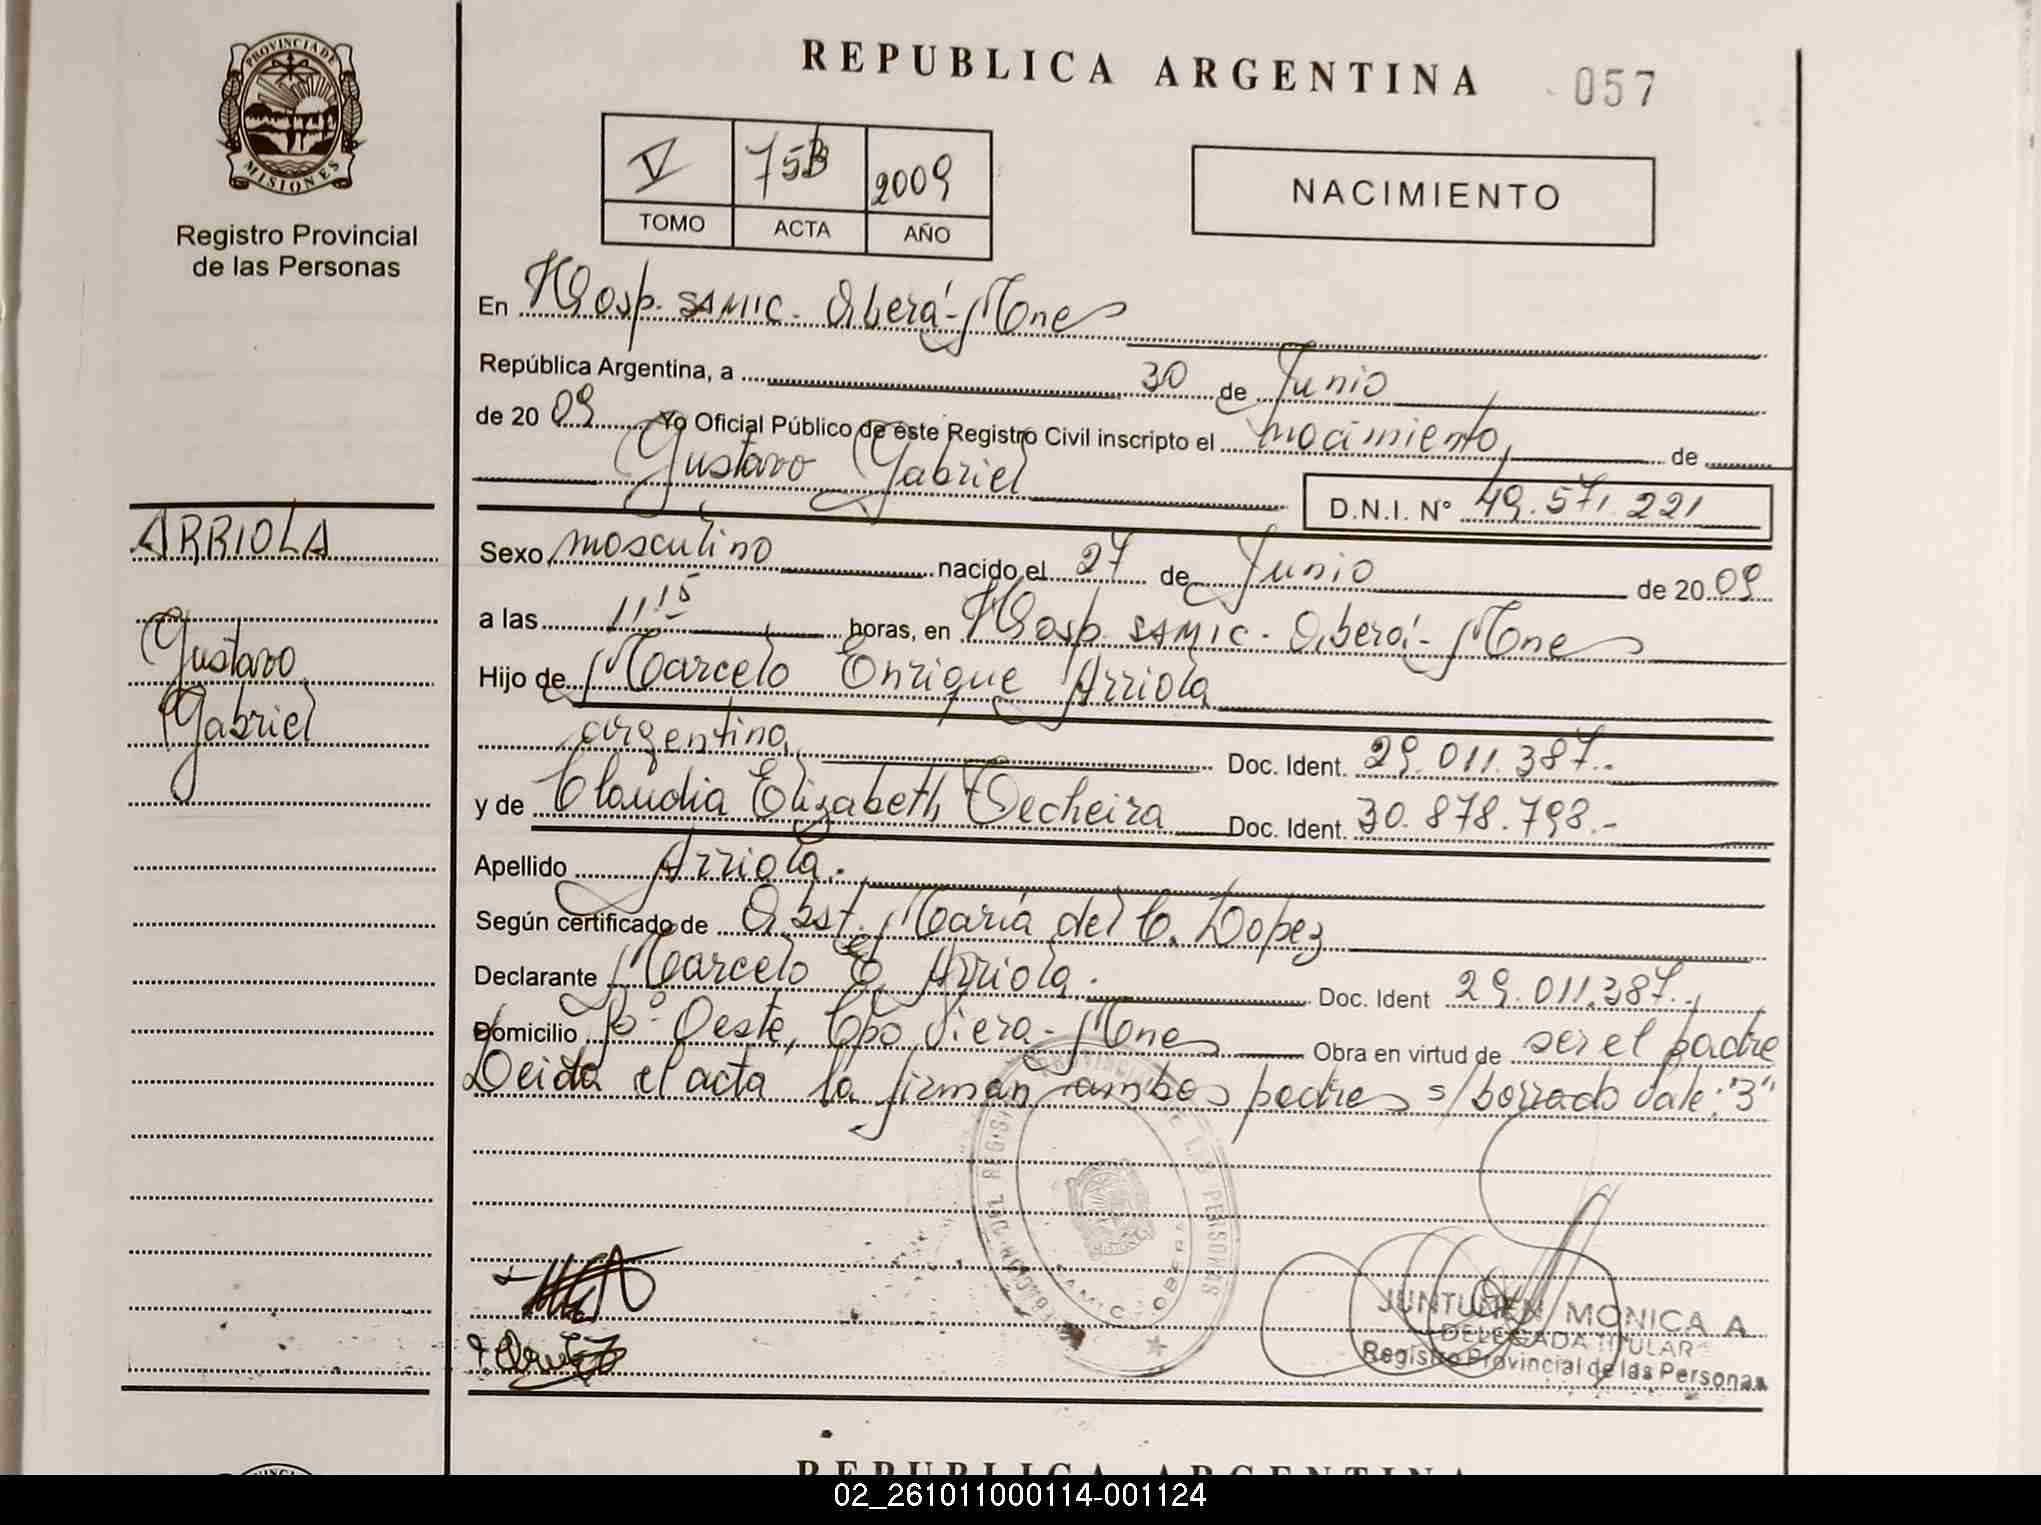 PROVINCIA DE
MISIONES
Registro Provincial
de las Personas
REPUBLICA ARGENTINA 057
V 75B 2009
TOMO ACTA AÑO
NACIMIENTO
En Hosp. SAMIC - Oberá - Mnes
República Argentina, a 30 de Junio
de 20 09 Yo Oficial Público de este Registro Civil inscripto el nacimiento, de
Gustavo Gabriel
D.N.I. N° 49.571.221
ARRIOLA
Gustavo
Gabriel
Sexo masculino nacido el 27 de Junio de 20 09
a las 11 15 horas, en Hosp. SAMIC - Oberá - Mnes
Hijo de Marcelo Enrique Arriola
argentina Doc. Ident. 29.011.387.-
y de Claudia Elizabeth Techeira Doc. Ident. 30.878.798.-
Apellido Arriola.
Según certificado de Obst. María del C. Lopez
Declarante Marcelo E. Arriola. Doc. Ident 29.011.387.
Domicilio Bº Oeste, Cpo Viera - Mnes Obra en virtud de ser el padre
Leida el acta la firman ambos padres s/borrado vale: "3"
SAMIC - OBERA
JUNTUNEN MONICA A
DELEGADA TITULAR
Registro Provincial de las Personas
REPUBLICA ARGENTINA
02_261011000114-001124